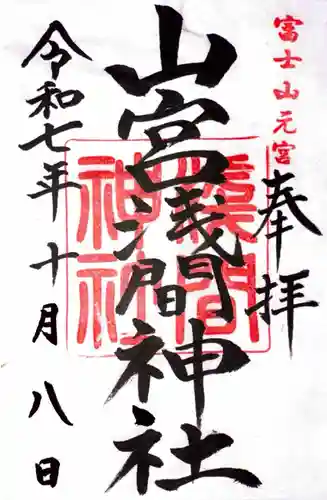 富士山元宮
奉拝
山宮浅間神社
浅間神社
令和七年十月八日